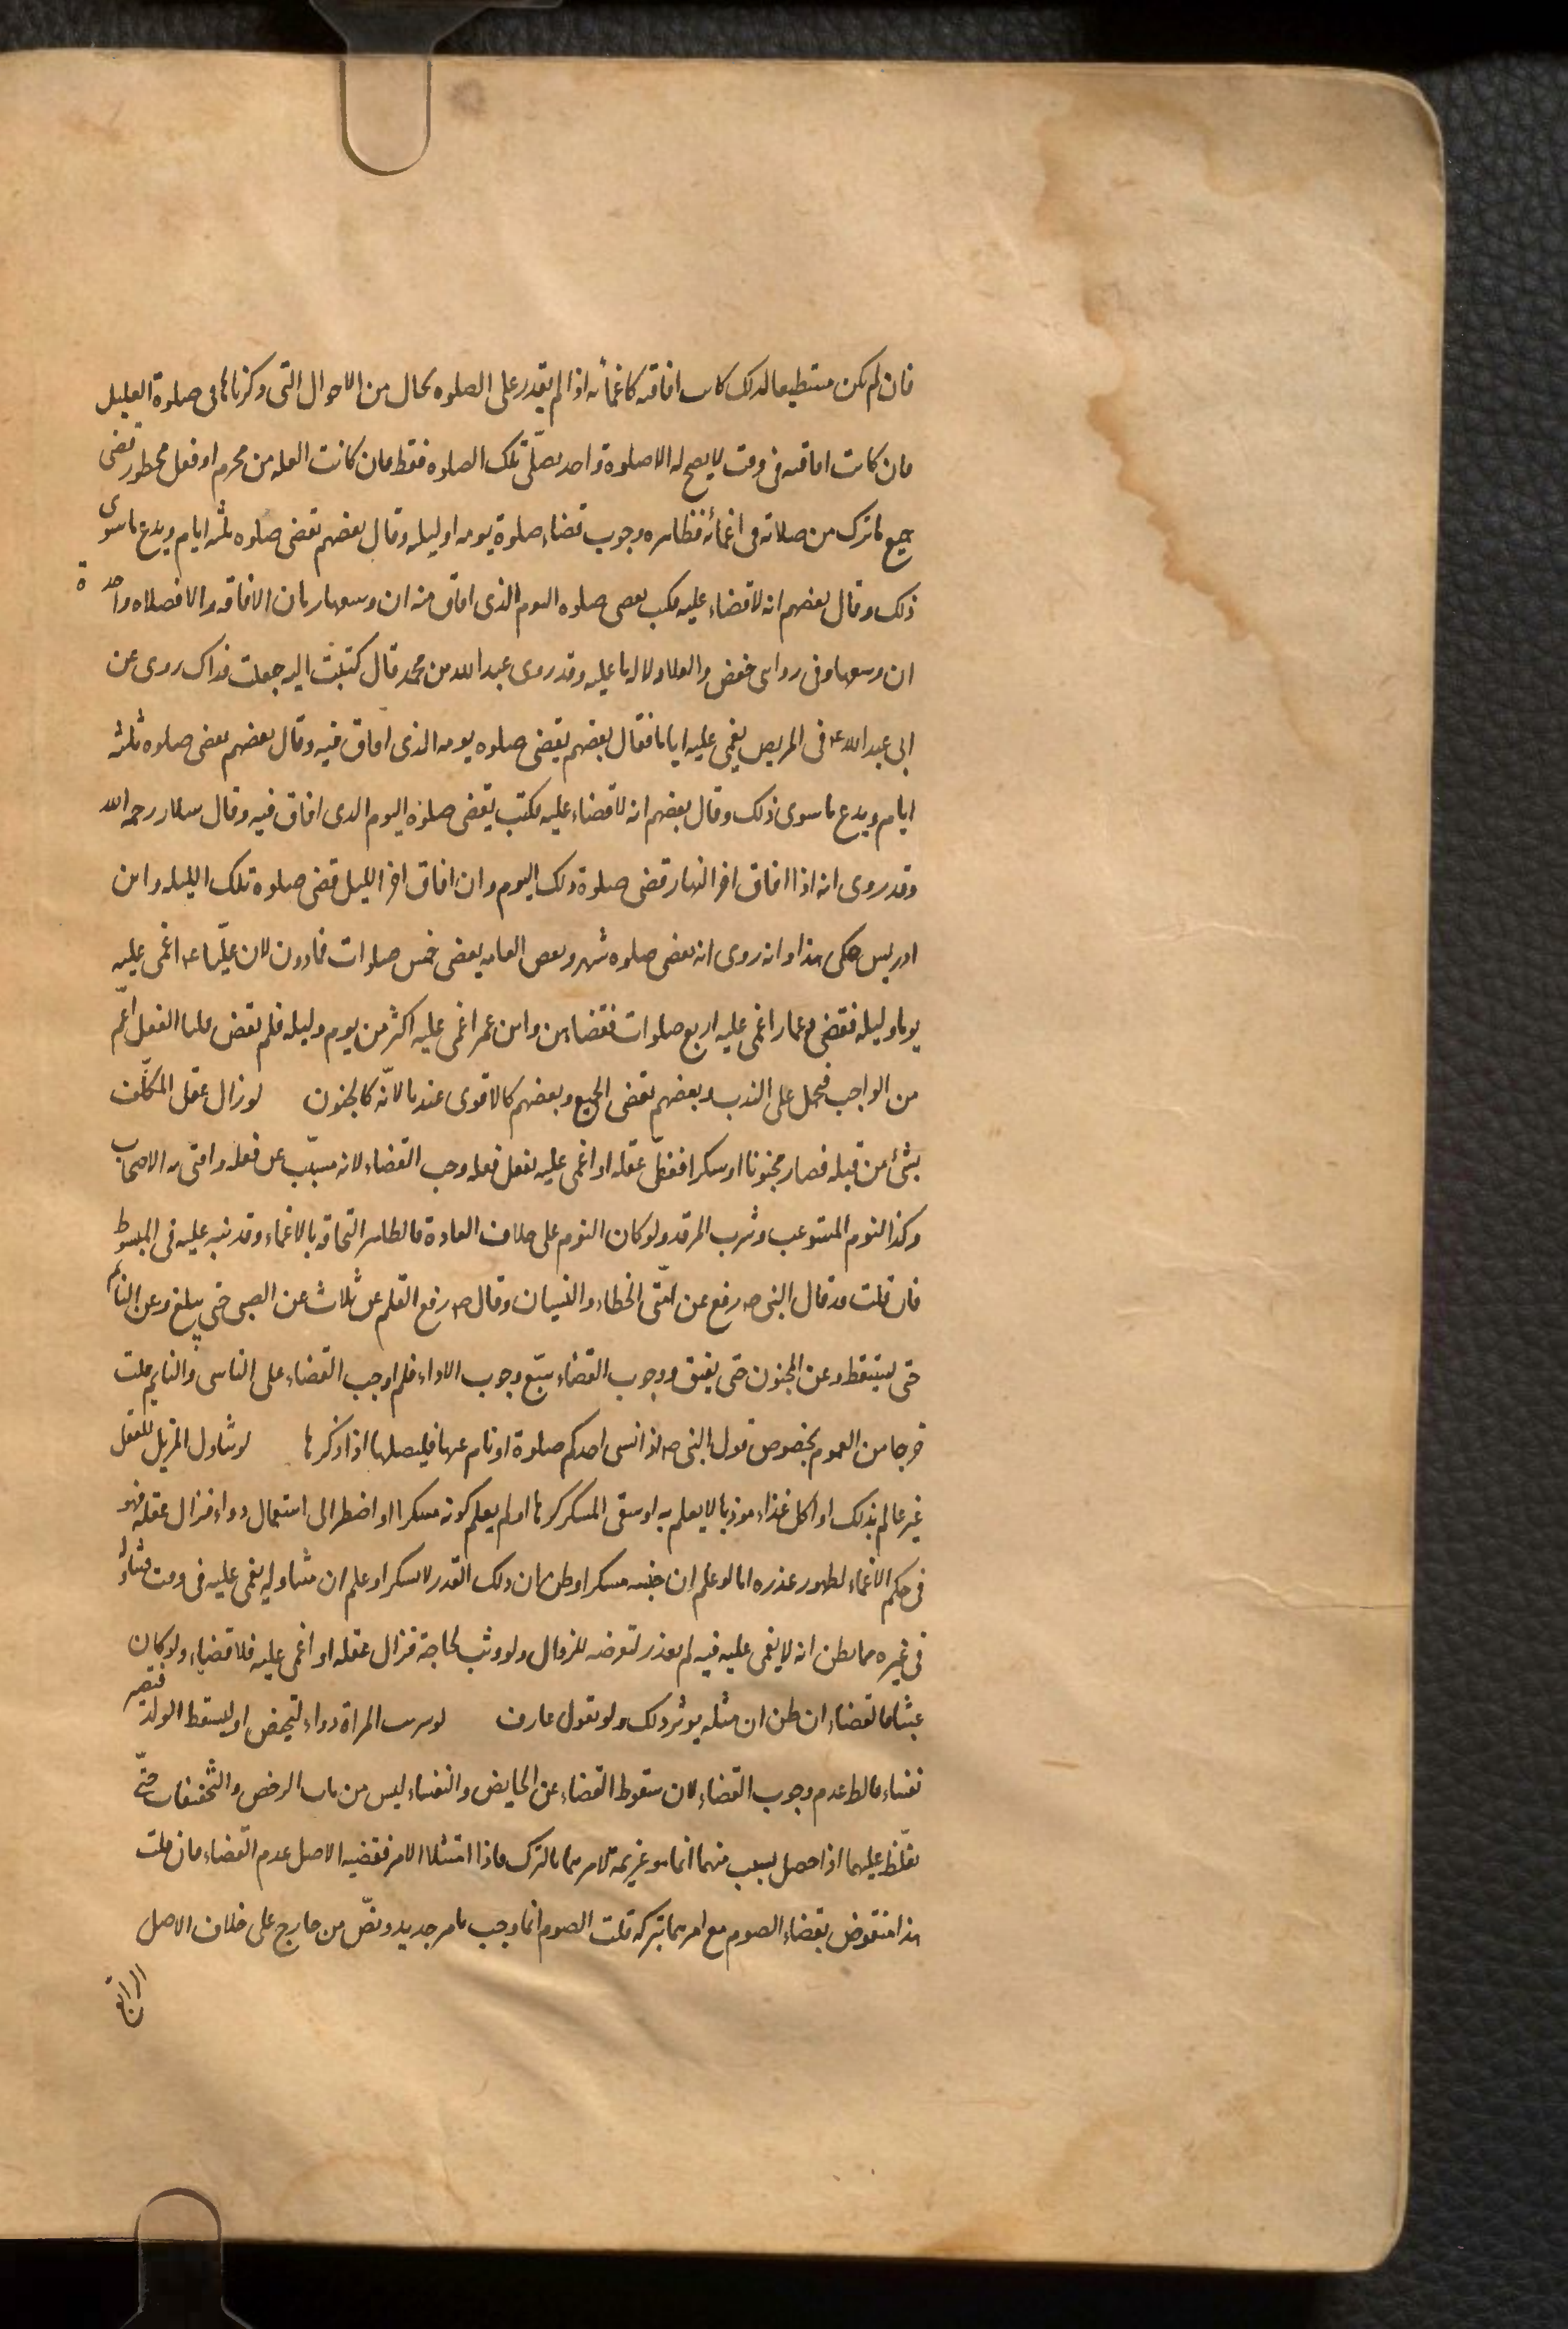 فان لم يكن مستطيعا لذلك كانت افاقته كاغمائه اذا لم يقدر على الصلوه بحال من الاحوال التى ذكرناها فى صلوة العليل
فان كانت افاقته فى وقت لا يصح له الا صلوة واحد يصلّى تلك الصلوه فقط فان كانت العله من محرم او فعل محظور قضى
جميع ما ترك من صلاته فى اغمائه فظاهره وجوب قضاء صلوة يومه او ليله وقال بعضهم يقضى صلوه ثلثه ايام ويدع ما سوى
ذلك وقال بعضهم انه لا قضاء عليه فكتب يقضى صلوه اليوم الذى افاق منه ان وسعها زمان الافاقه والا فصلاه واحدة
ان وسعها وفى روايتى حفص والعلا دلاله ما عليه وقد روى عبد الله بن محمد قال كتبت اليه جعلت فداك روى عن
ابى عبد الله ع فى المريض يغمى عليه اياما فقال بعضهم يقضى صلوه يومه الذى افاق فيه وقال بعضهم يقضى صلوه ثلثه
ايام ويدع ما سوى ذلك وقال بعضهم انه لا قضاء عليه فكتب يقضى صلوة اليوم الذى افاق فيه وقال سلار رحمه الله
وقد روى انه اذا افاق اخر النهار قضى صلوة ذلك اليوم وان افاق اخر الليل قضى صلوة تلك الليله وابن
ادريس حكى هذا وانه روى انه يقضى صلوه شهر وبعض العامه يقضى خمس صلوات فمادون لان عليّا ع اغمى عليه
يوما وليله فقضى وعمار اغمى عليه اربع صلوات فقضاهن وابن عمر اغمى عليه اكثر من يوم وليله فلم يقض قلنا الفعل اعم
من الواجب فيحمل على الندب وبعضهم يقضى الجميع وبعضهم كالاقوى عندنا لانّه كالجنون لو زال عقل المكلّف
بشئ من قبله فصار مجنونا او سكرا فغطّى عقله او اغمى عليه بفعل فعله وجب القضاء لانه مسبّب عن فعله وافتى به الاصحاب
وكذا النوم المستوعب وشرب المرقد ولو كان النوم على خلاف العادة فالظاهر التحاقه بالاغماء وقد نبه عليه فى المبسوط
فان قلت قد قال النبى ص رفع عن امّتى الخطاء والنسيان وقال ص رفع القلم عن ثلاث عن الصبى حتى يبلغ وعن النائم
حتى يستيقظ وعن المجنون حتى يفيق ووجوب القضاء يتبع وجوب الاداء فلم اوجب القضاء على الناسى والنايم قلت
خرجا من العموم بخصوص قول النبى ص اذا نسى احدكم صلوة او نام عنها فليصلها اذا ذكرها لو تناول المزيل للعقل
غير عالم بذلك او اكل غذاء موذيا لا يعلم به او سقى المسكر كرها او لم يعلم كونه مسكرا او اضطر الى استعمال دواء فزال عقله فهو
فى حكم الاغماء لظهور عذره اما لو علم ان جنسه مسكرا وظن ان ذلك القدر لا يسكر او علم ان متناوله يغمى عليه فى وقت فتناوله
فى غيره مما يظن انه لا يغمى عليه فيه لم يعذر لتعرضه للزوال ولو وثب لحاجة فزال عقله او اغمى عليه فلا قضاء ولو كان
عبثا فالقضاء ان ظن ان مثله يوثر ذلك ولو بقول عارف لو شربت المراة دواء لتحيض او ليسقط الولد فتصير
نفساء فالظ عدم وجوب القضاء لان سقوط القضاء عن الحايض والنفساء ليس من باب الرخص والتخفيفات حتى
يغلّظ عليهما اذا حصل بسبب منهما انما هو عزيمة لامرهما بالترك فاذا امتثلا الامر فقضيه الاصل عدم القضاء فان قلت
هذا منقوض بقضاء الصوم مع امرهما بتركه قلت الصوم انما وجب بامر جديد ونصّ من خارج على خلاف الاصل
الرابع